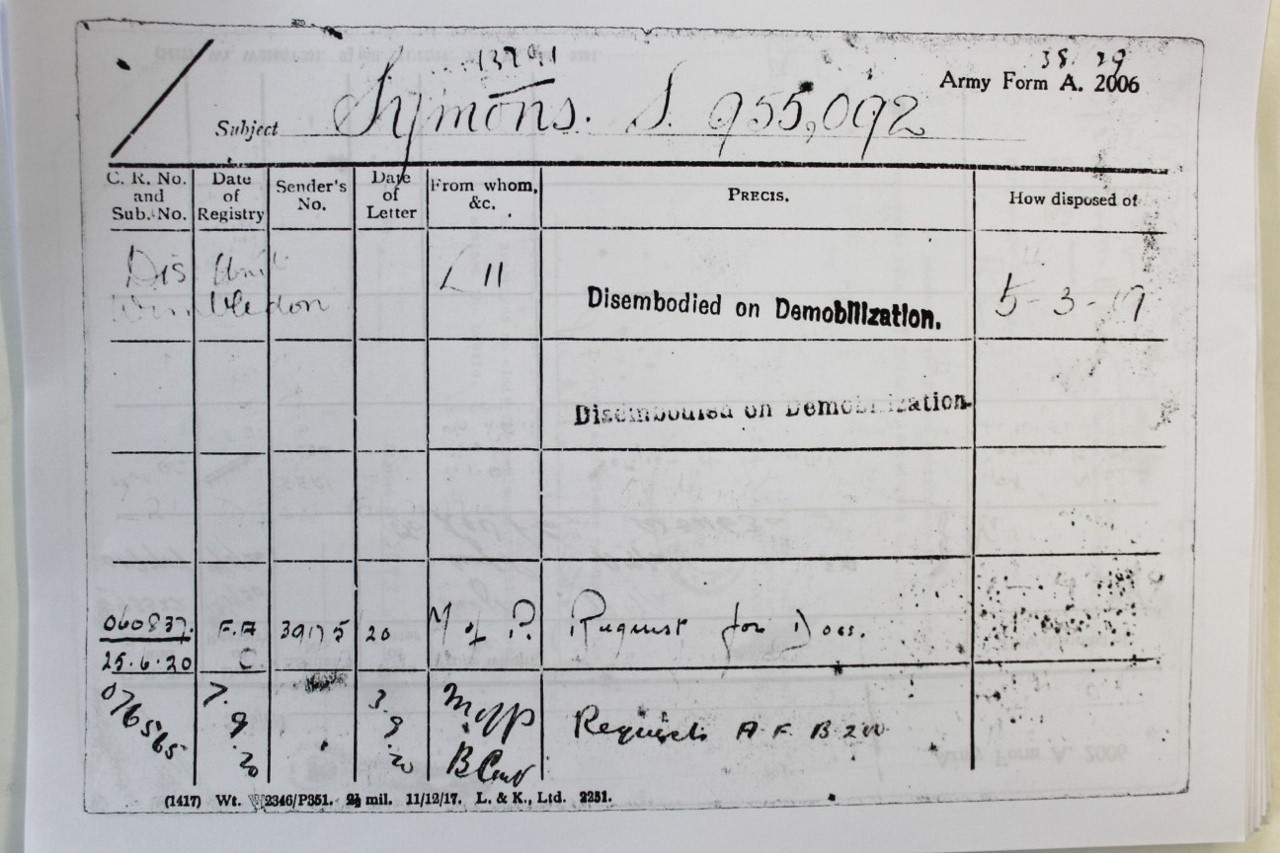 13791
38.29
Army Form A. 2006
Subject Symons. S. 955,092
C. R. No. and Sub. No.
Date of Registry
Sender's No.
Date of Letter
From whom, &c.
PRECIS.
How disposed of
Dis Unit
Wimbledon
L 11
Disembodied on Demobilization.
5-3-19
Disembodied on Demobilization.
060837. F.A 39175 20 M of P. Request for Docs.
25.6.20 C.
076565 7. 9 20 3 9 20 M of P Requests A F B 200
(1417) Wt. W2346/P351. 2½ mil. 11/12/17. L. & K., Ltd. 2251.
Army Form A. 2006